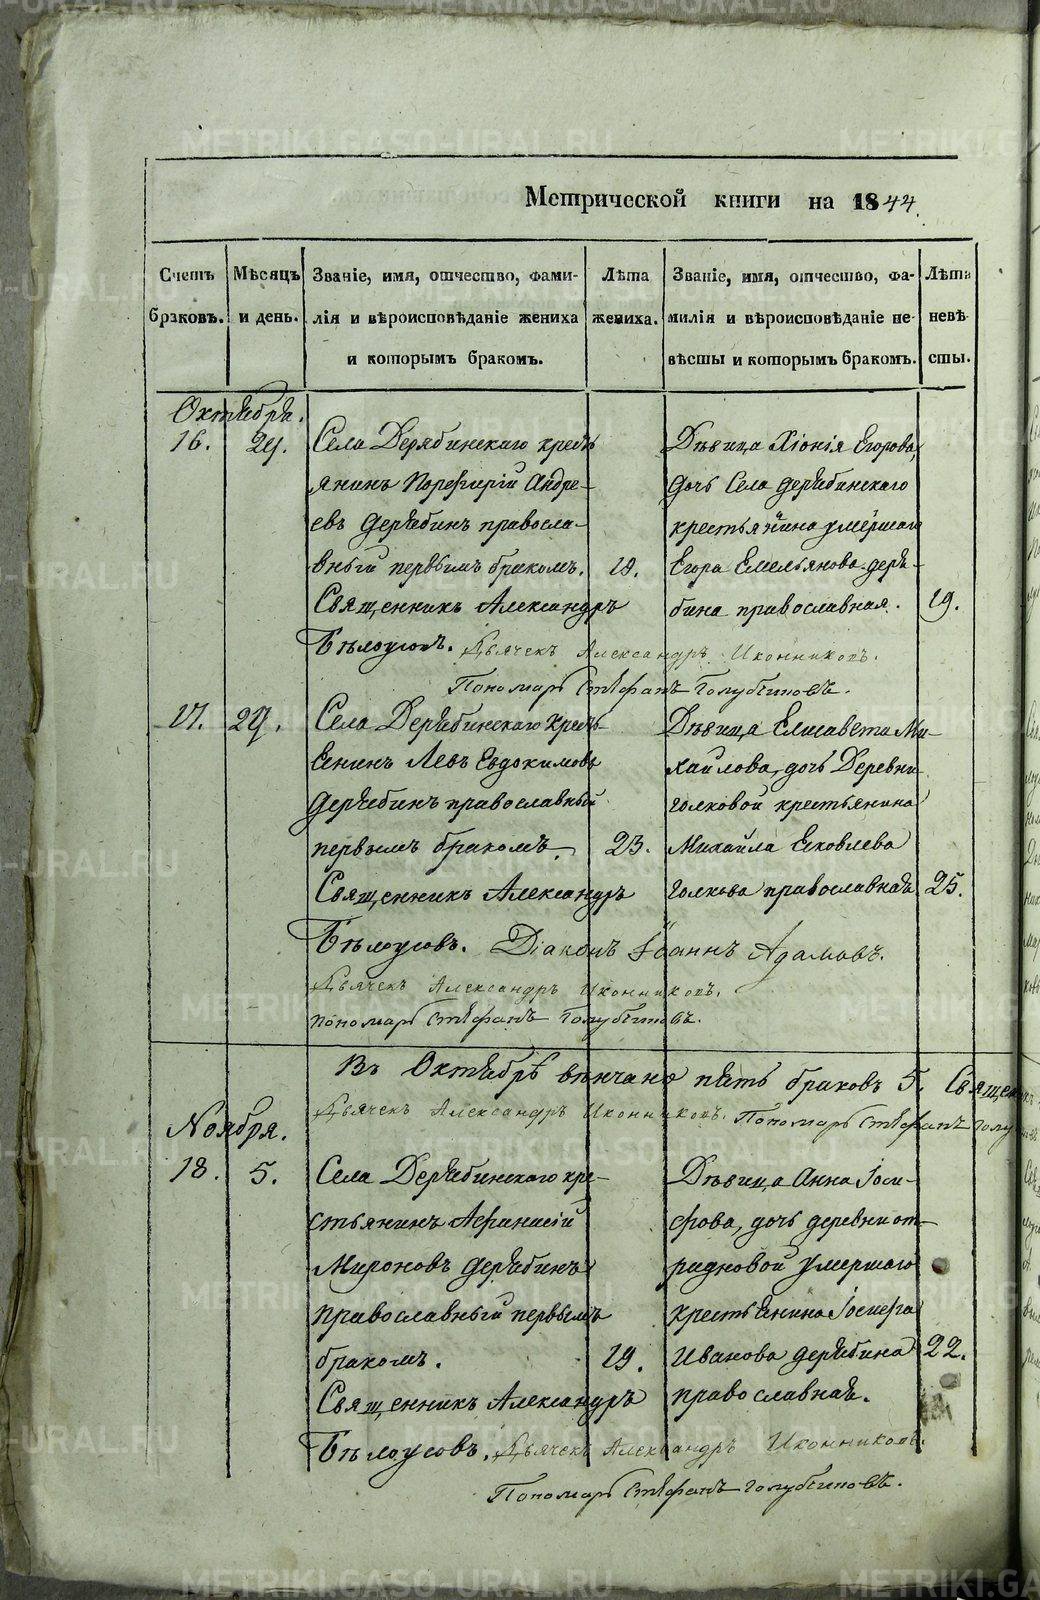 Метрической книги на 1844.
Счетъ браковъ.
Мѣсяцъ и день.
Званіе, имя, отчество, фами-
лія и вѣроисповѣданіе жениха
и которымъ бракомъ.
Лѣта жениха.
Званіе, имя, отчество, фа-
милія и вѣроисповѣданіе не-
вѣсты и которымъ бракомъ.
Лѣта невѣ-
сты.
Октября.
16.
29.
Села Дерябинскаго кресть
янинъ Порфирій Андре-
евъ Дерябинъ правосла-
вный первымъ бракомъ.
19.
Священникъ Александръ
Бѣлоусовъ. Дьячекъ Александръ Иконниковъ.
Пономарь Стефанъ Голубчиковъ.
Дѣвица Хіонія Егорова,
дочь Села Дерябинскаго
крестьянина умершаго
Егора Емельянова Деря-
бина православная.
19.
17.
29.
Села Дерябинскаго кресть
янинъ Левъ Евдокимовъ
Дерябинъ православный
первымъ бракомъ.
23.
Священникъ Александръ
Бѣлоусовъ. Діаконъ Іоаннъ Адамовъ.
Дьячекъ Александръ Иконниковъ.
Пономарь Стефанъ Голубчиковъ.
Дѣвица Елисавета Ми-
хайлова, дочь Деревни
Голковой крестьянина
Михайла Яковлева
Голкова православная
25.
Въ Октябрѣ вѣнчано пять браковъ 5. Священ
Дьячекъ Александръ Иконниковъ. Пономарь Стефанъ Голу
Ноября.
18.
5.
Села Дерябинскаго кре-
стьянинъ Афанасій
Мироновъ Дерябинъ
православный первымъ
бракомъ.
19.
Священникъ Александръ
Бѣлоусовъ. Дьячекъ Александръ Иконниковъ.
Пономарь Стефанъ Голубчиковъ.
Дѣвица Анна Іоси-
фова, дочь деревни от-
радновой умершаго
крестьянина Іосифа
Иванова Дерябина
православная.
22.
METRIKI.GASO-URAL.RU